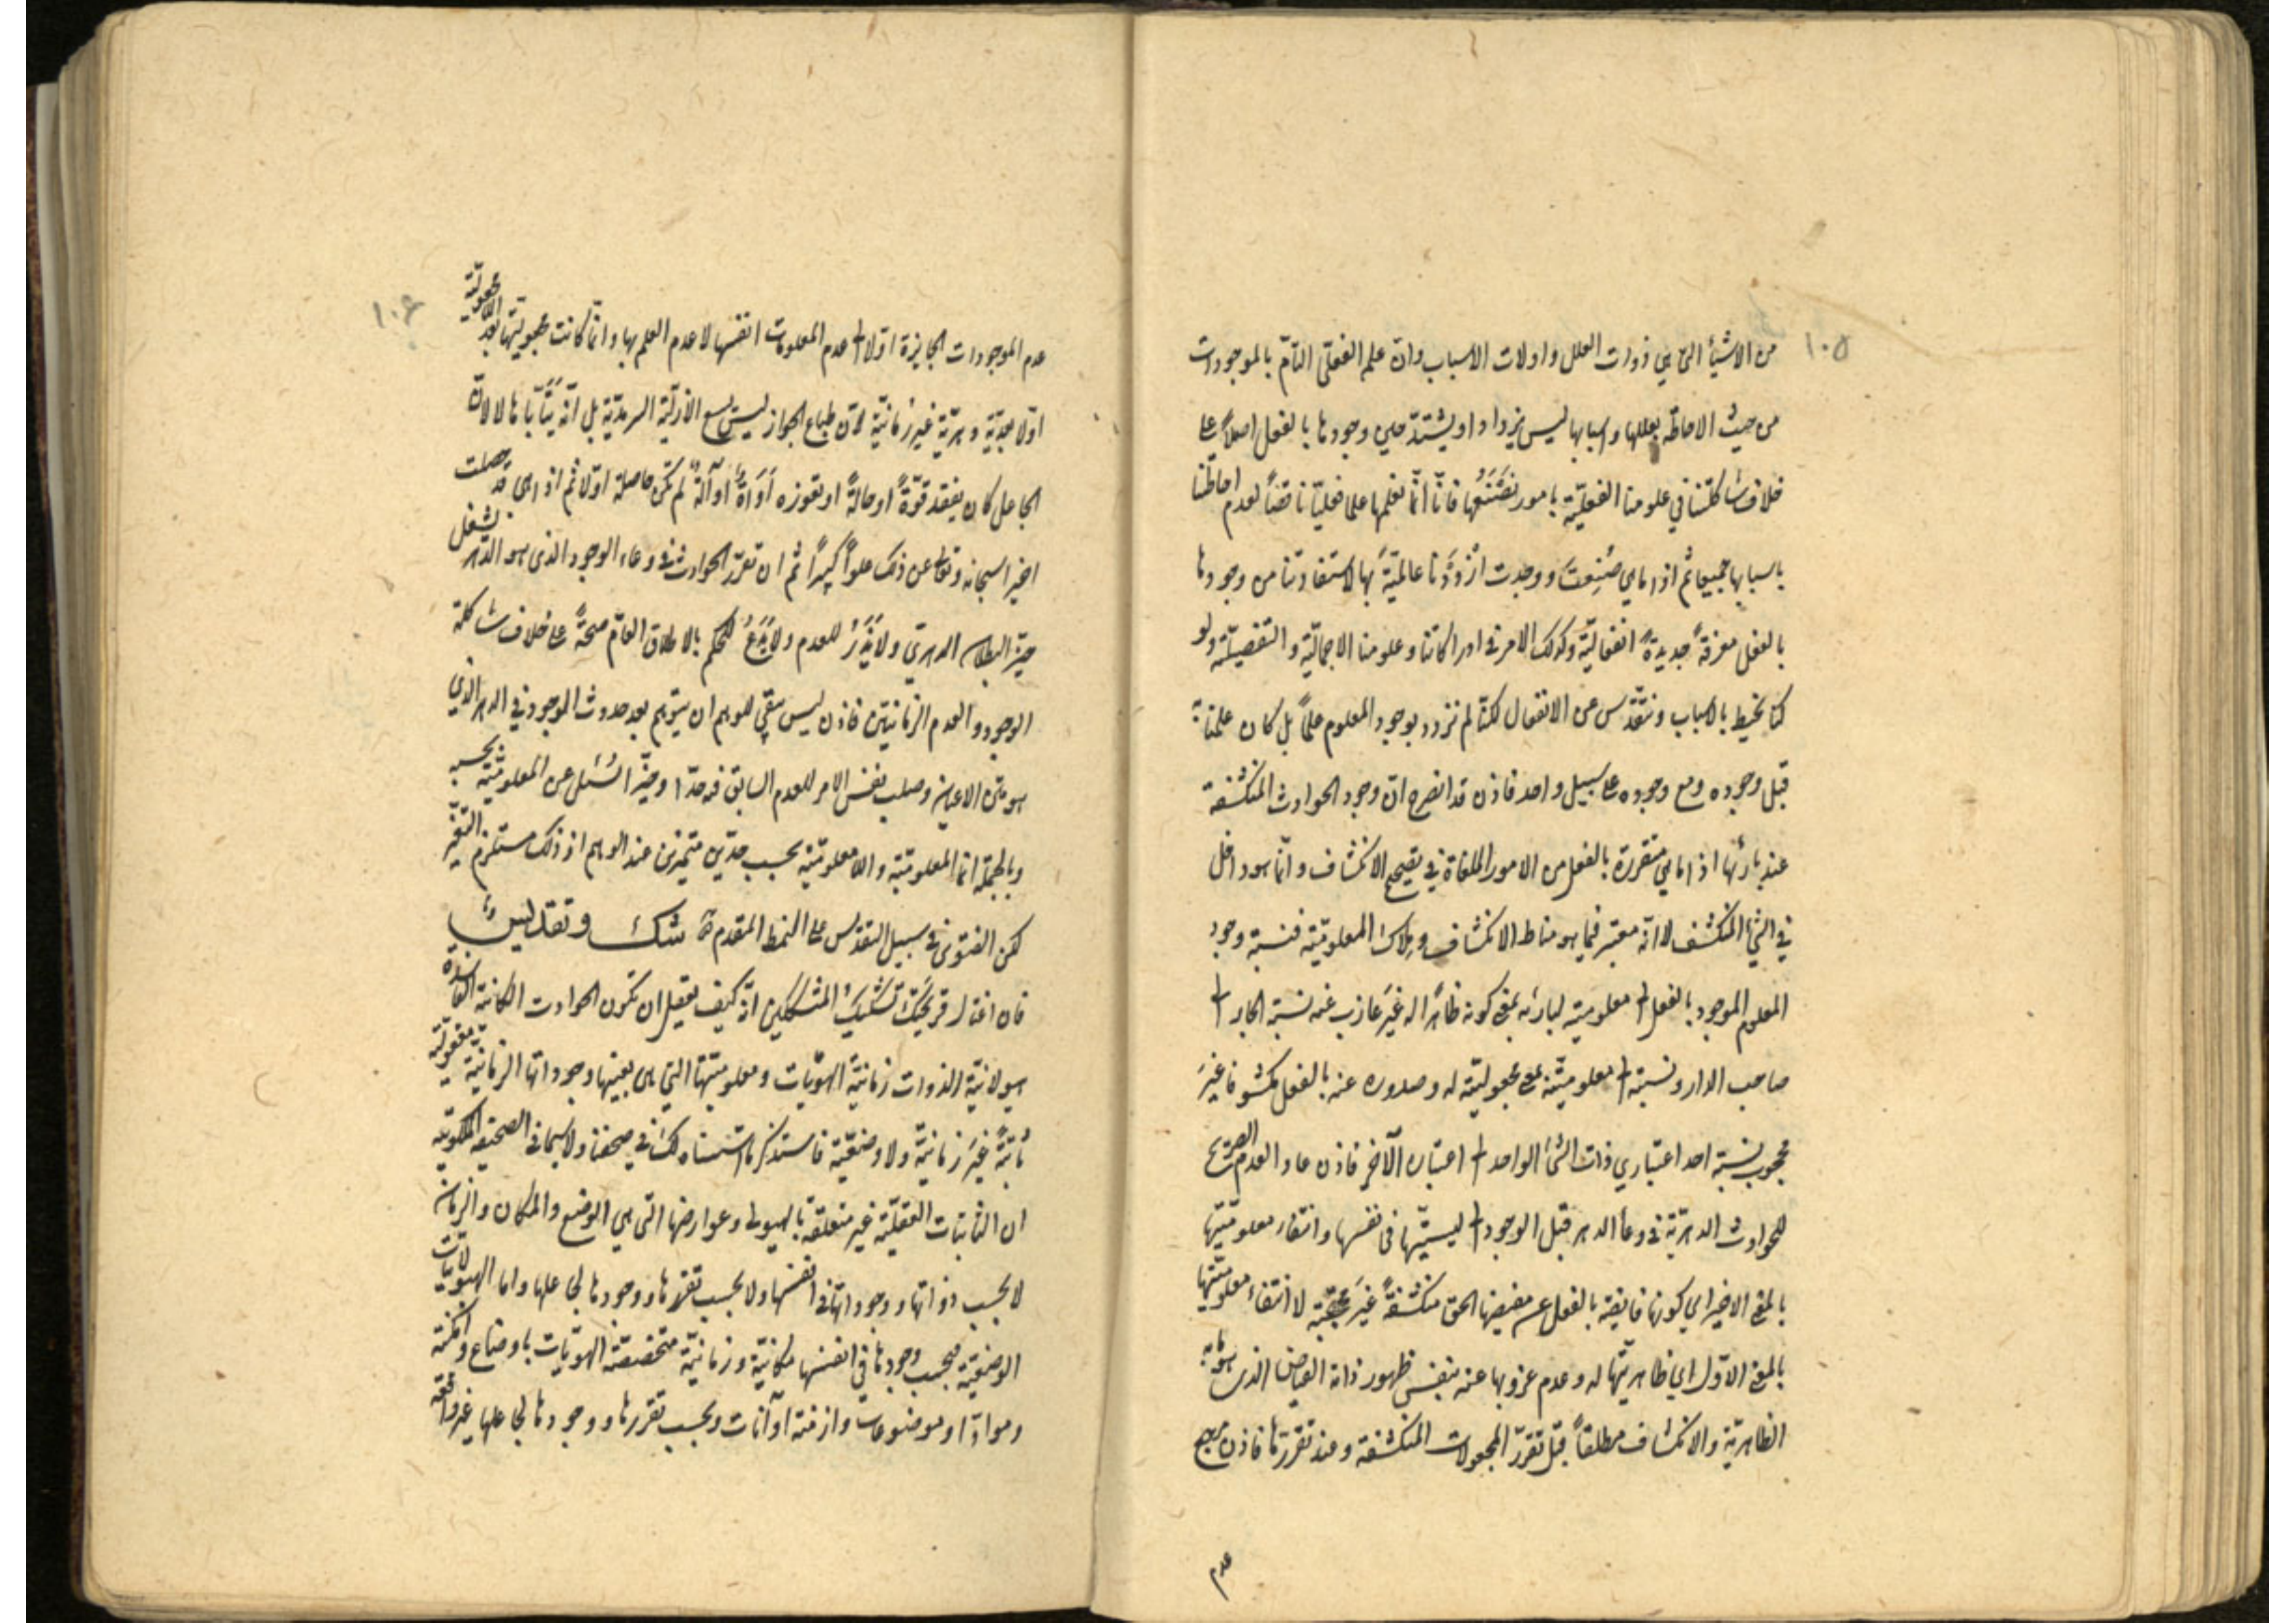 ١٠٥
من الاشيآء التي هي ذوات العلل واولات الاسباب وانّ علمه الفعلىّ التامّ بالموجودات
من حيث الاحاطة بعللها واسبابها ليس يزداد او يشتدّ حين وجودها بالفعل اصلاً على
خلاف شاكلتنا في علومنا الفعليّة بامور نصنعها فانّا انّما نعلمها علما فعليّا ناقصاً لعدم احاطتنا
باسبابها جميعا ثم اذا ما هي صُنِعت ووجدت ازددنا عالميّة بها لاستفادتنا من وجودها
بالفعل معرفة جديدة انفعاليّة وكذلك الامر في ادراكاتنا وعلومنا الاجماليّة والتفصيليّة ولو
كنّا نحيط بالاسباب ونتقدّس عن الانفعال لكنّا لم نزدد بوجود المعلوم علماً بل كان علمنا به
قبل وجوده ومع وجوده على سبيل واحد فاذن قد انصرح انّ وجود الحوادث المنكشفة
عند بارئها اذا ما هي متقررة بالفعل من الامور الملغاة في تصحيح الانكشاف وانّما هو داخل
في الشئ المنكشف لا انّه معتبر فيما هو مناط الانكشاف وملاك المعلوميّة فنسبة وجود
المعلوم الموجود بالفعل الى معلوميته لبارئه بمعنى كونه ظاهرا له غير عازب عنه نسبة الجار الى
صاحب الدار ونسبته الى معلوميّته بمعنى مجعوليّته له وصدوره عنه بالفعل مكشوفا غير
محجوب نسبة احد اعتباري ذات الشئ الواحد الى اعتباره الآخر فاذن عاد العدم الصريح
للحوادث الدهريّة في وعاء الدهر قبل الوجود الى ليسيّتها في نفسها وانتفاء معلوميّتها
بالمعنى الاخير اي كونها فايضة بالفعل عن مفيضها الحق منكشفة غير محتجبة لا انتفاء معلوميّتها
بالمعنى الاوّل اي ظاهريّتها له وعدم عزوبها عنه بنفس ظهور ذاته الفياض الذى هو مابه
الظاهريّة والانكشاف مطلقاً قبل تقرّر المجعولات المنكشفة وعند تقررها فاذن مرجع
عدم
١٠٦
عدم الموجودات الجايزة اولا الى عدم المعلومات انفسها لا عدم العلم بها وانّما كانت مجعوليتها بعد اللامجعوليّة
اوّلا بعديّة دهريّة غير زمانيّة لانّ طباع الجواز ليس يسع الازليّة السرمديّة بل انّه يتأبّاها لا لانّ
الجاعل كان يفقد قوّةً او حالةً او تعوزه اداةٌ او آلةٌ لم تكن حاصلة اوّلا ثم اذا هى قد حصلت
اخيرا سبحانه وتعالى عن ذلك علواً كبيراً ثم ان تقرّر الحوادث في وعاء الوجود الذى هو الدهر يشغل
حيّز البطلان الدهريّ ولا يذر للعدم ولا يدع للحكم بالاطلاق العامّ صحةً على خلاف شاكلة
الوجود والعدم الزمانيّين فاذن ليس يبقى للوهم ان يتوهم بعد حدوث الموجود في الدهر الذي
هو متن الاعيان وصلب نفس الامر للعدم السابق فيه حدّا وحيّزا لسئل عن المعلوميّة بحسبه
وبالجملة انما المعلوميّة واللامعلوميّة بحسب حدّين متميزين عند الوهم اذ ذلك مستلزم التغيّر
لكن الفتوى في سبيل التقدّس على النمط المتقدم شكّ وتقديس
فان اغتال قريحتك تشكيك المتشككين انّه كيف يعقل ان تكون الحوادث الكائنة الفاسدة
هيولانيّة الذوات زمانيّة الهويّات ومعلوميّتها التي هى بعينها وجوداتها الزمانيّة معقوليّة
ثابتة غير زمانيّة ولا وضعيّة فاستذكر ما استسناه لك في صحفنا ولا سيما في الصحيفة الملكوتيّة
ان الثابتات العقليّة غير متعلقة بالهيولى وعوارضها التي هي الوضع والمكان والزمان
لا بحسب ذواتها ووجوداتها في انفسها ولا بحسب تقررها ووجودها لجاعلها واما الهيولانيّات
الوضعيّة فبحسب وجودها في انفسها مكانيّة وزمانيّة متخصصة الهويّات باوضاع وامكنة
وموادّ او موضوعات وازمنة او آنات وبحسب تقررها ووجودها لجاعلها غير واقعة